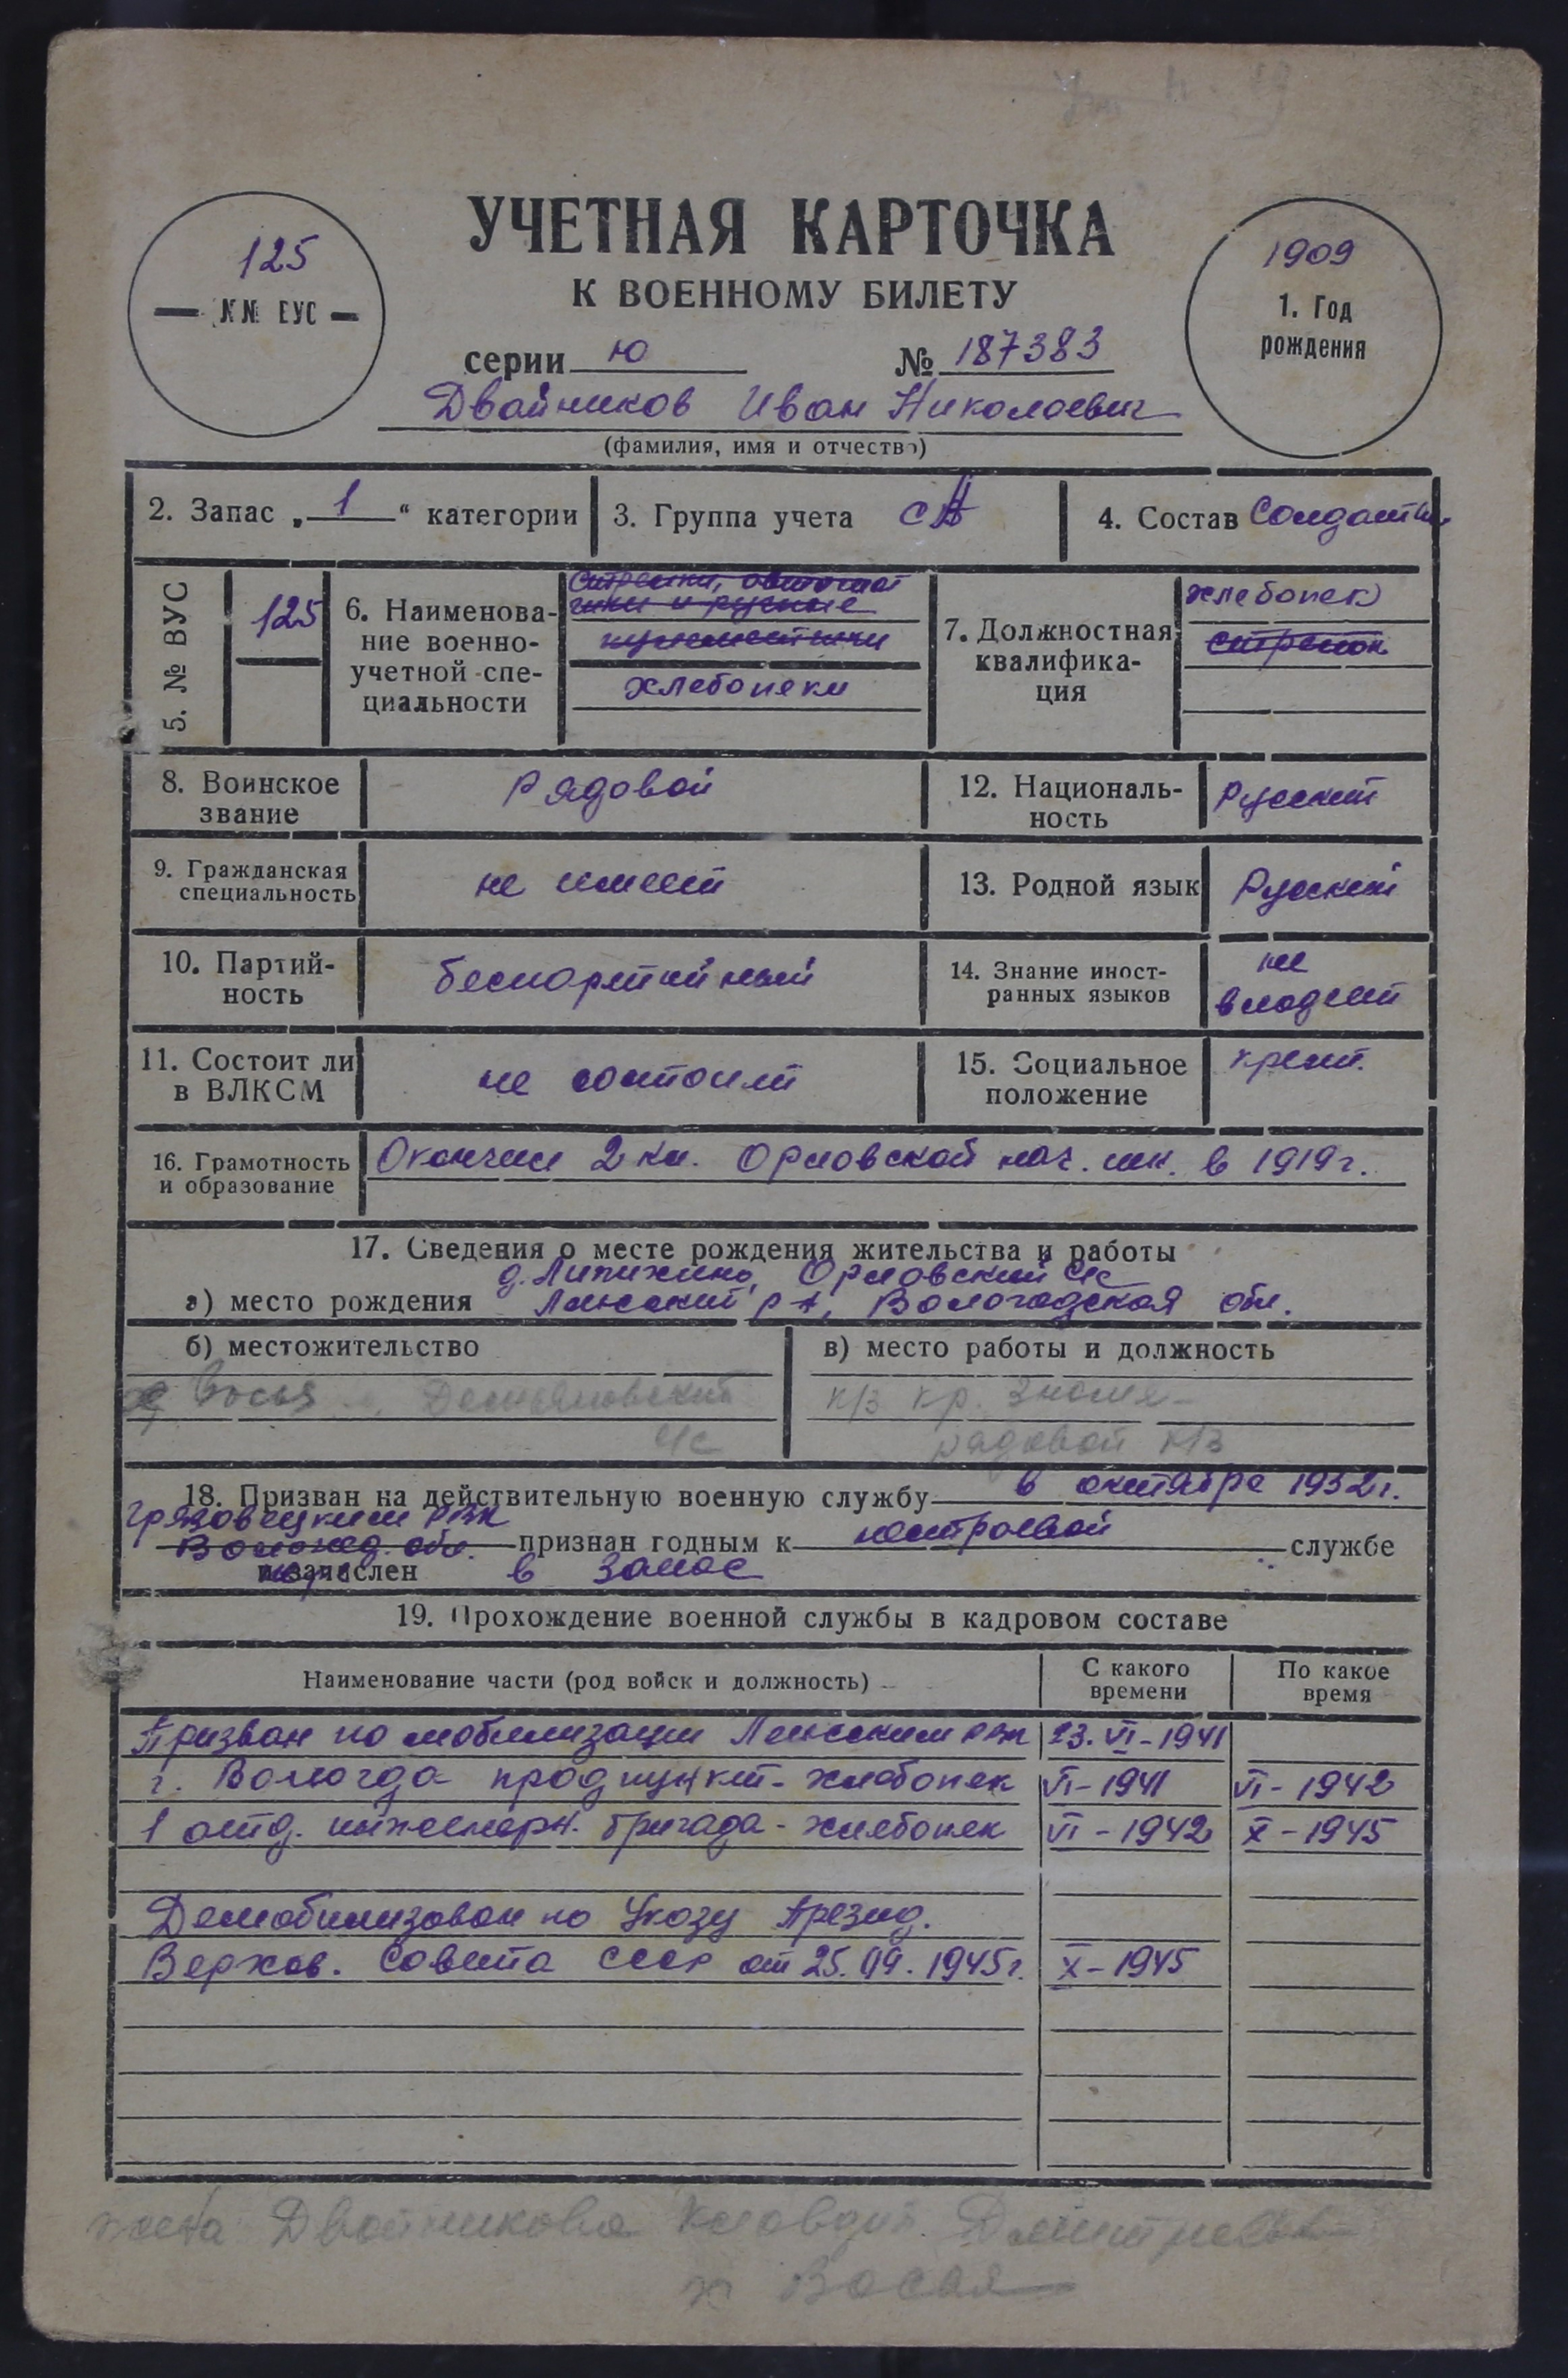 125
№№ ВУС
УЧЕТНАЯ КАРТОЧКА
К ВОЕННОМУ БИЛЕТУ
серии Ю № 187383
Двойников Иван Николаевич
(фамилия, имя и отчество)
1909
1. Год
рождения
2. Запас „ 1 “ категории
3. Группа учета СА
4. Состав Солдатск.
5. № ВУС
125
6. Наименова-
ние военно-
учетной спе-
циальности
стрелки, автомат
чики и ручные
пулеметчики
хлебопеки
7. Должностная
квалифика-
ция
хлебопек
стрелок
8. Воинское
звание
Рядовой
12. Националь-
ность
Русский
9. Гражданская
специальность
не имеет
13. Родной язык
Русский
10. Партий-
ность
беспартийный
14. Знание иност-
ранных языков
не
владеет
11. Состоит ли
в ВЛКСМ
не состоит
15. Социальное
положение
крест.
16. Грамотность
и образование
Окончил 2 кл. Орловской нач. шк. в 1919 г.
17. Сведения о месте рождения жительства и работы
д. Липихино, Орловский с/с
а) место рождения Ленский р-н, Вологодская обл.
б) местожительство
в) место работы и должность
к/з кр. знамя-
с/с
рядовой к/з
18. Призван на действительную военную службу в октябре 1932 г.
Грязовецким РВК
Вологод. обл. признан годным к нестроевой службе
и зачислен в запас
19. Прохождение военной службы в кадровом составе
Наименование части (род войск и должность)
С какого
времени
По какое
время
Призван по мобилизации Ленским РВК 23. VI - 1941
г. Вологда продпункт - хлебопек VI - 1941 VI - 1942
1 отд. инженерн. бригада - хлебопек VI - 1942 X - 1945
Демобилизован по Указу Презид.
Верхов. Совета СССР от 25. 09. 1945 г. X - 1945
жена Двойникова Клавдия Дмитриевна